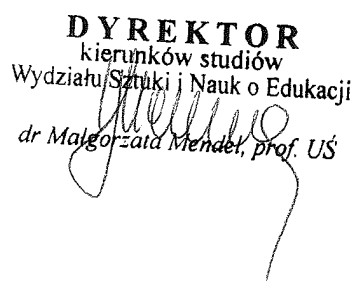 DYREKTOR
kierunków studiów
Wydziału Sztuki i Nauk o Edukacji
dr Małgorzata Mendel, prof. UŚ